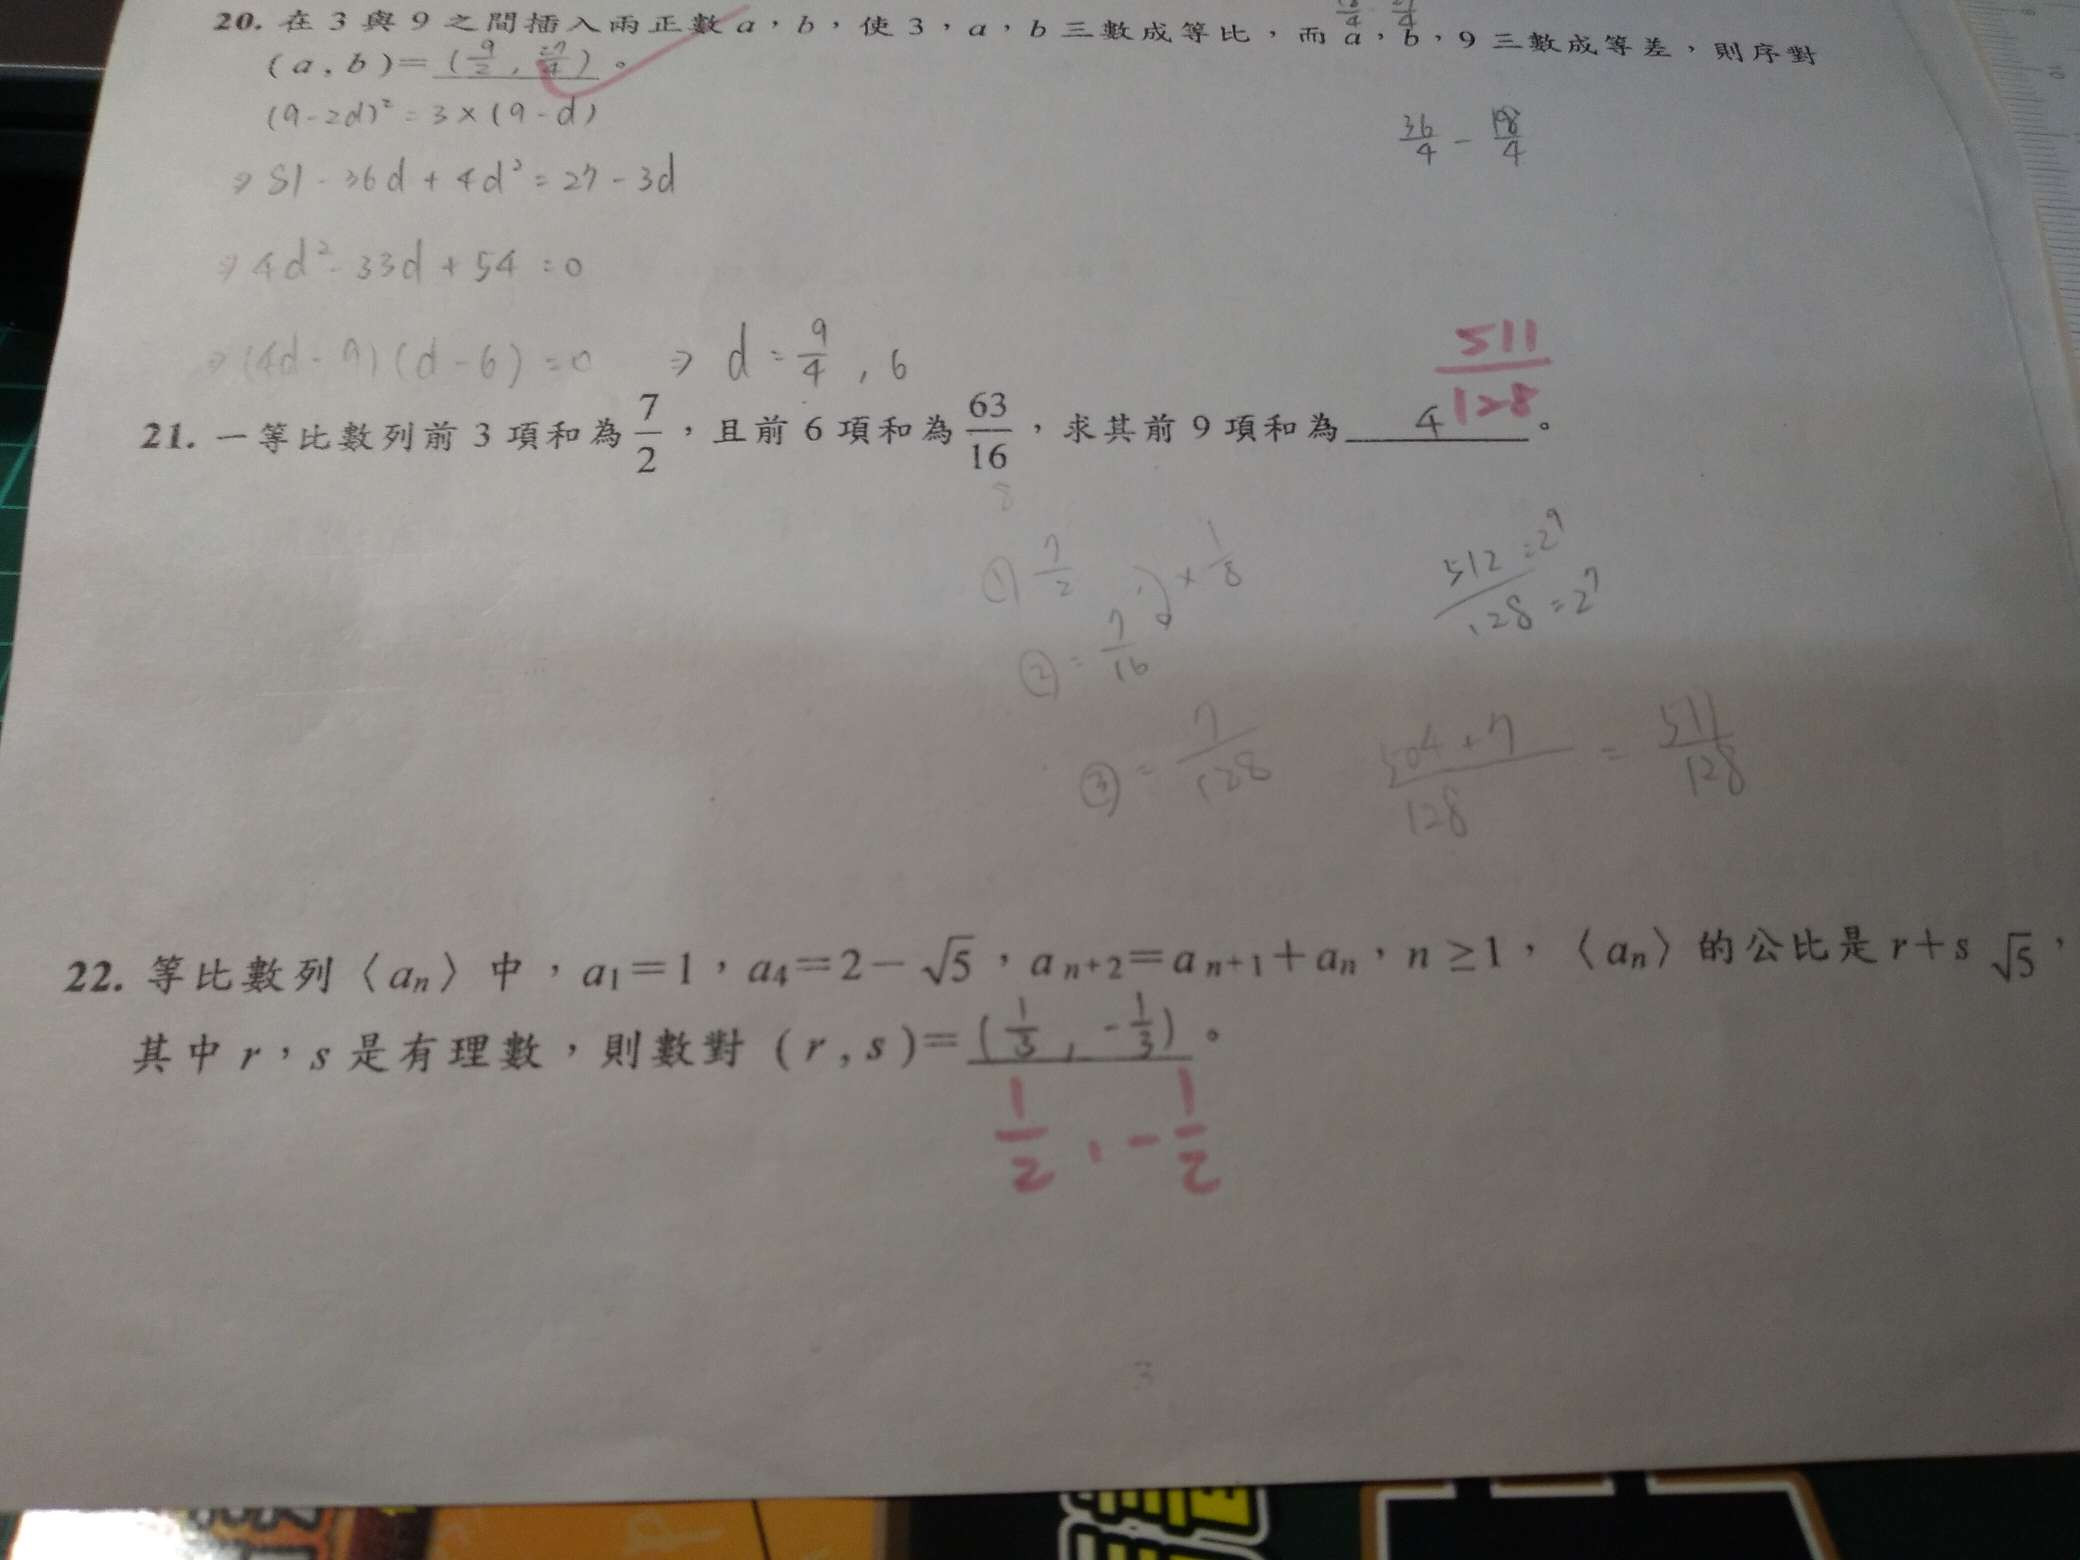 20. 在 3 與 9 之間插入兩正數 a，b，使 3，a，b 三數成等比，而 a，b，9 三數成等差，則序對
(a , b)= (9/2 , 27/4) 。
(9-2d)² = 3×(9-d)
36/4 - 18/4
⇒ 81-36d+4d² = 27-3d
⇒ 4d²-33d+54 = 0
⇒ (4d-9)(d-6) = 0 ⇒ d = 9/4 , 6
511/128
21. 一等比數列前 3 項和為 7/2，且前 6 項和為 63/16，求其前 9 項和為 4 。
① 7/2 ×1/8
512 = 2⁹
128 = 2⁷
② = 7/16
③ = 7/128
504+7/128 = 511/128
22. 等比數列〈aₙ〉中，a₁=1，a₄=2-√5，aₙ₊₂=aₙ₊₁+aₙ，n≥1，〈aₙ〉的公比是 r+s√5，
其中 r，s 是有理數，則數對 (r , s)= (1/3 , -1/3) 。
1/2 , -1/2
3